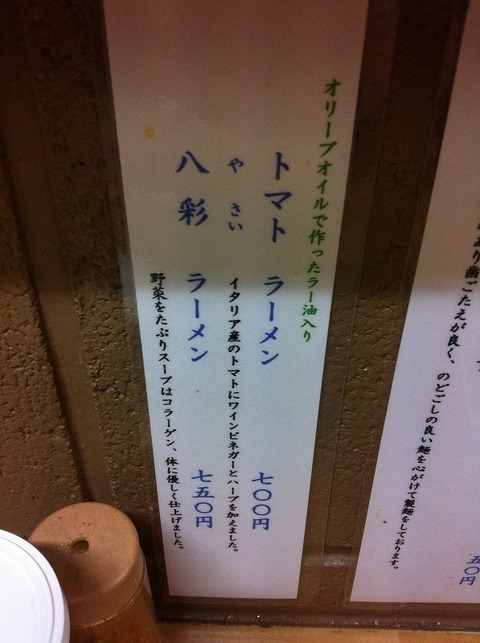 あり歯ごたえが良く、のどごしの良い麺を心がけて製麺をしております。
五〇円
オリーブオイルで作ったラー油入り
トマト ラーメン 七〇〇円
イタリア産のトマトにワインビネガーとハーブを加えました。
やさい
八彩 ラーメン 七五〇円
野菜をたぷりスープはコラーゲン、体に優しく仕上げました。